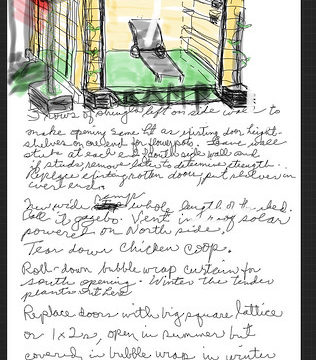 3 rows of shingles left on side wall to
make opening same ht as existing door height.
shelves on one end for flower pots. Leave wall
studs at each end south side wall and
if studs, remove later to determine strength.
Replace existing rotten door, put shelves in
over end.
New wide ramp whole length of the shed.
Call it gazebo. Vent in roof solar
powered on North side.
Tear down chicken coop.
Roll-down bubble wrap curtain for
south opening. Winter the tender
plants out here
Replace doors with big square lattice
or 1x2s, open in summer but
covered in bubble wrap in winter